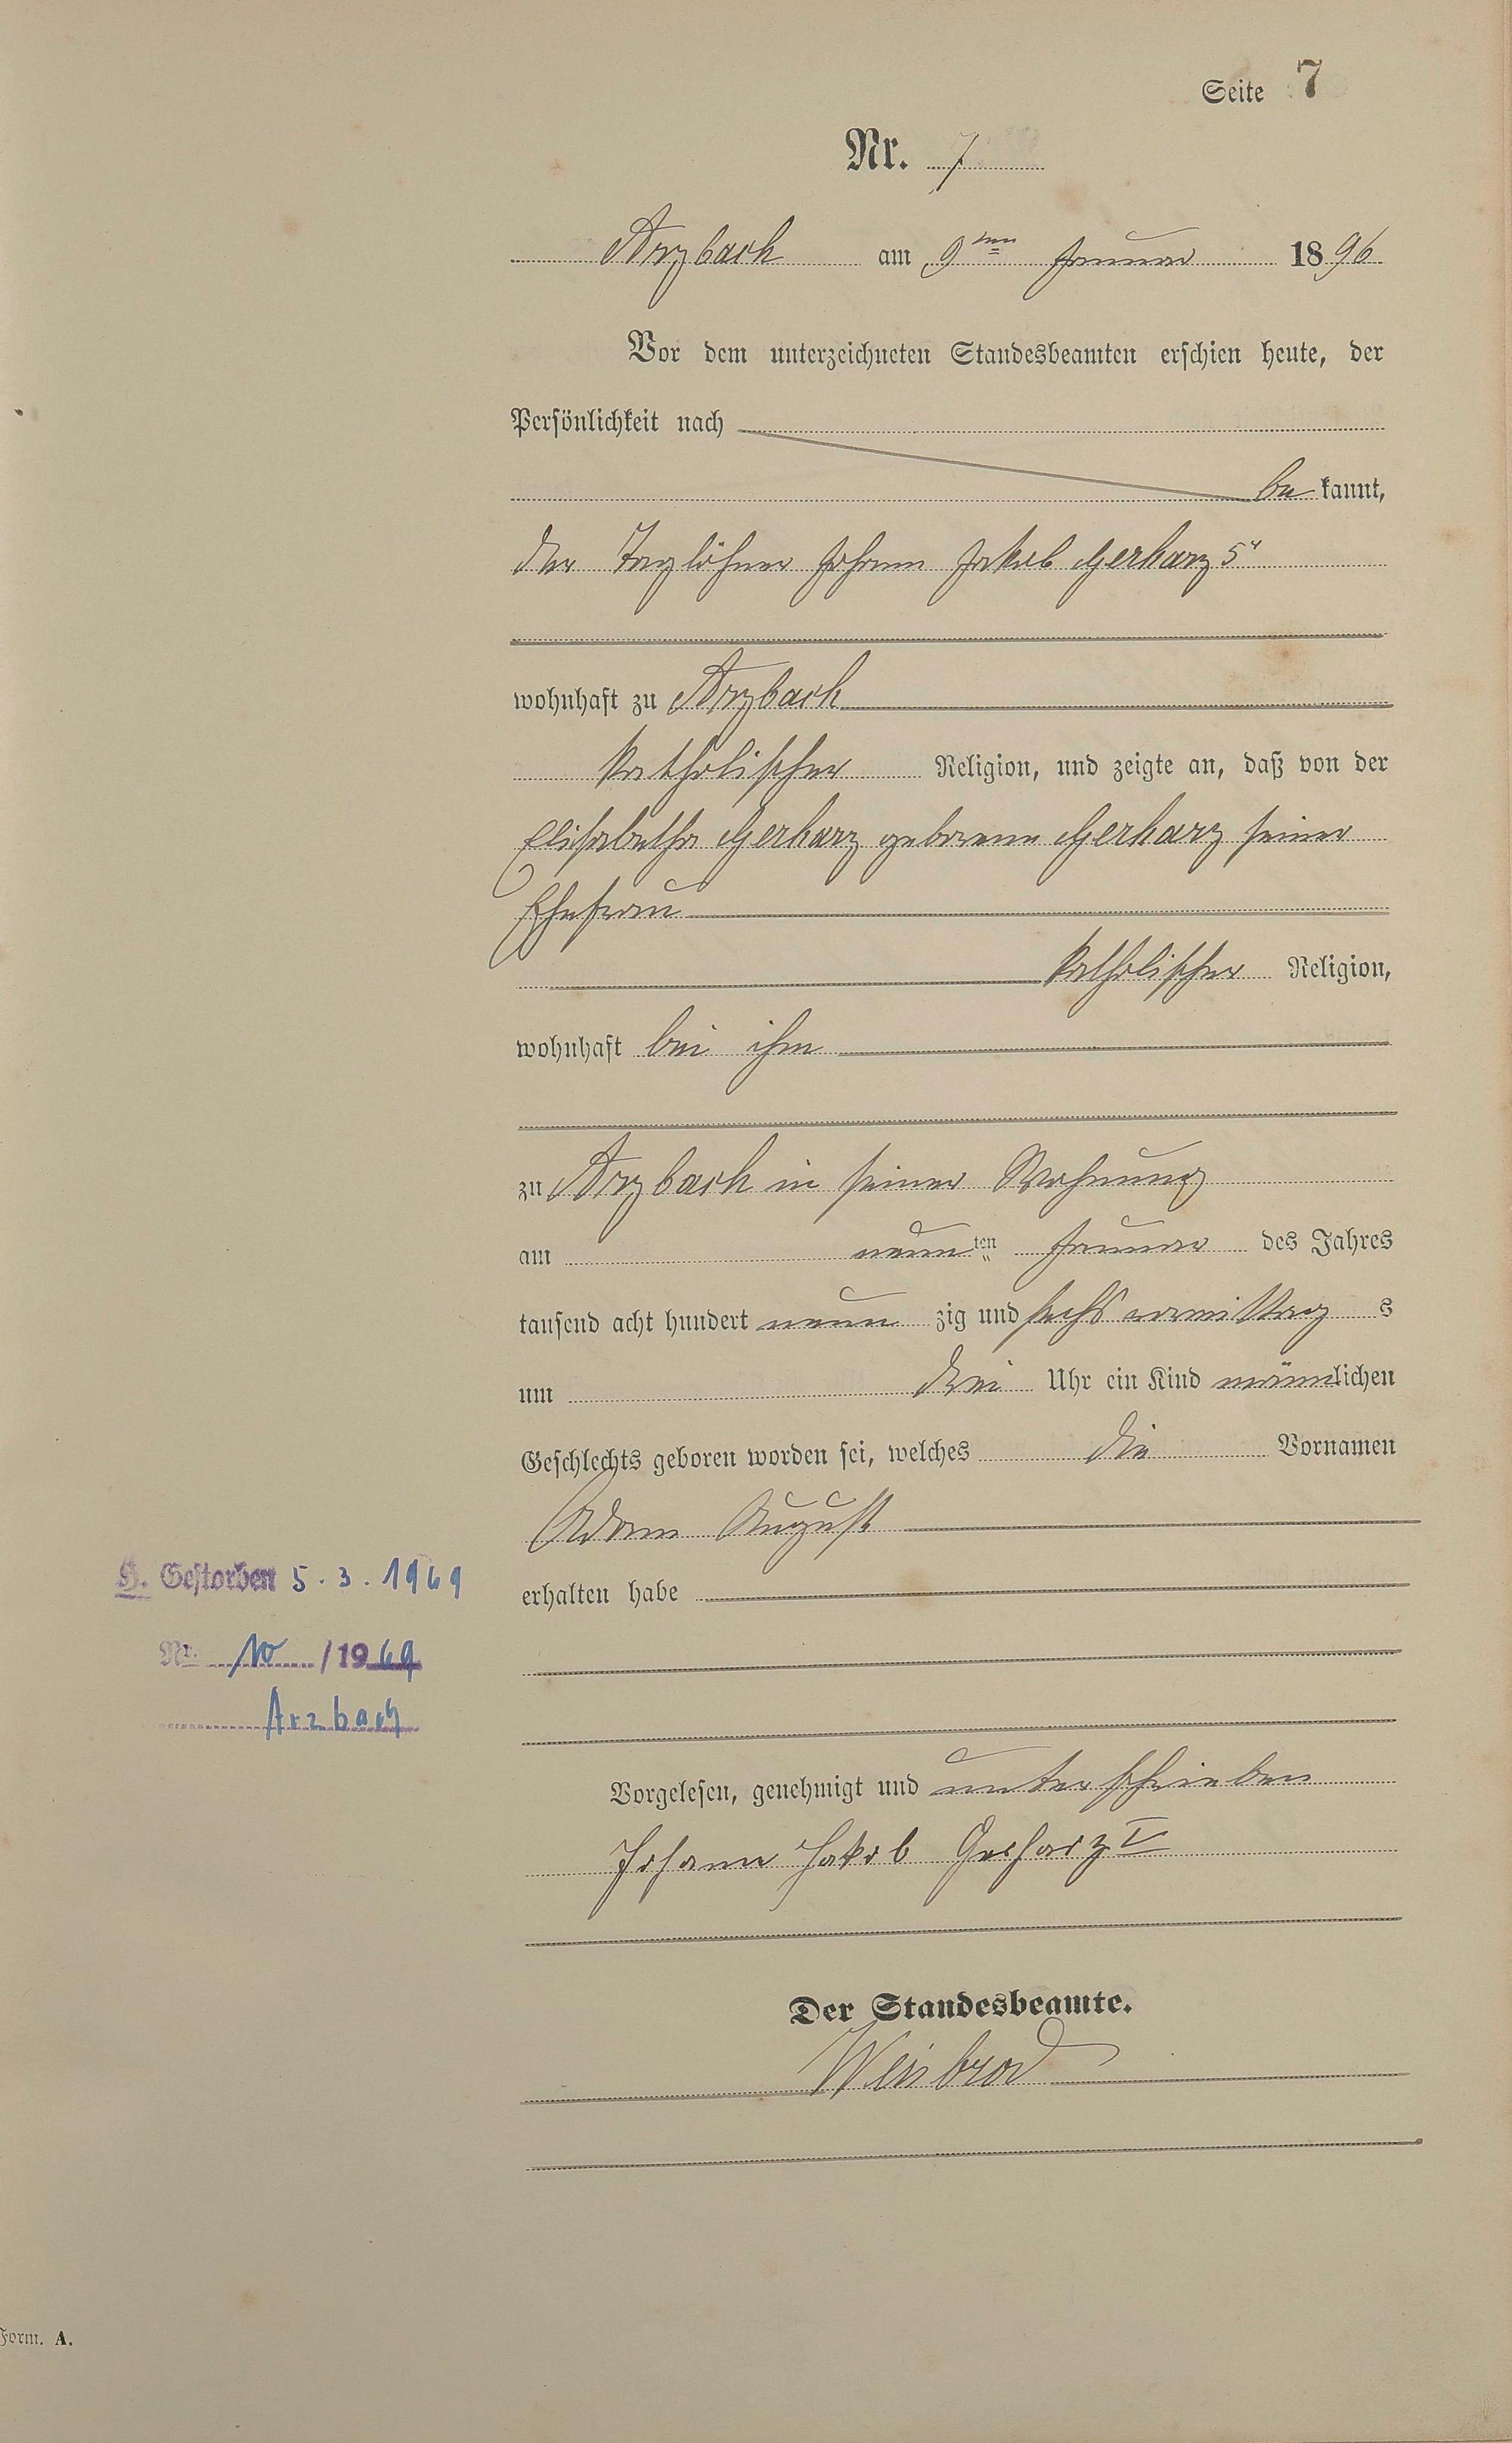 Seite 7
Nr. 7
Arzbach am 9ten Januar 1896
Vor dem unterzeichneten Standesbeamten erschien heute, der
Persönlichkeit nach
be kannt,
der Taglöhner Johann Jakob Gerharz 5r
wohnhaft zu Arzbach
katholischer Religion, und zeigte an, daß von der
Elisabetha Gerharz geborene Gerharz seiner
Ehefrau
katholischer Religion,
wohnhaft bei ihm
zu Arzbach in seiner Wohnung
am neunten Januar des Jahres
tausend acht hundert neun zig und sechs vormittag s
um drei Uhr ein Kind männlichen
Geschlechts geboren worden sei, welches die Vornamen
Adam August
H. Gestorben 5.3.1969
erhalten habe
Nr. 10 / 1969
Arzbach
Vorgelesen, genehmigt und unterschrieben
Johann Jakob Gerharz V
Der Standesbeamte.
Weisbrod
Form. A.